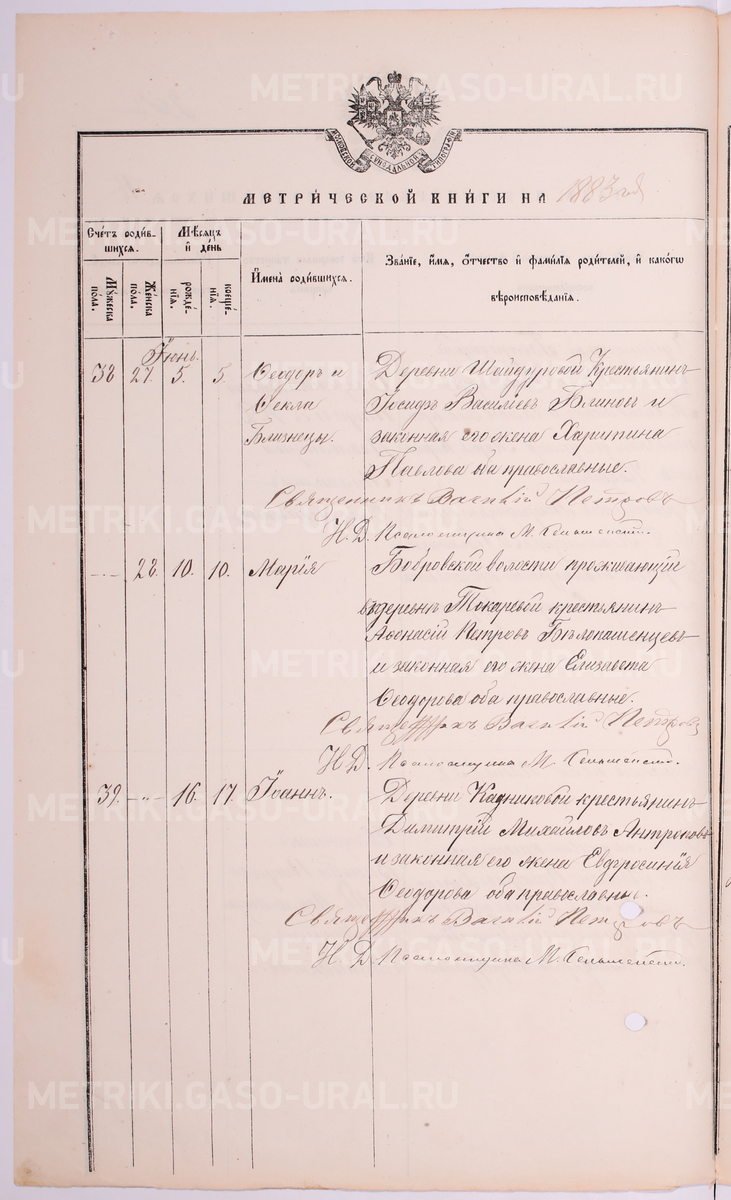 МЕТРИ́ЧЕСКОЙ КНИ́ГИ НА 1883 год
Сче́тъ роди́в-
шихся.
Мꙋ́жеска
пола.
Же́нска
пола.
Мѣсяцъ
и́ де́нь
рожде́-
нїѧ.
креще́-
нїѧ.
И҆мена̀ родившихся.
Зва́нїе, и҆́мѧ, ѻ҆́тчество и҆ фамилїѧ роди́телей, и҆ како́гѡ
вѣроисповѣ́данїѧ.
Іюнь.
38 27. 5. 5. Ѳеодоръ и
Ѳекла
Близнецы.
Деревни Шайдуровой Крестьянинъ
Іосифъ Васильевъ Блиновъ и
законная его жена Харитина
Павлова оба православные.
Священникъ Петровъ
Н. Д. Псаломщика М.
-„- 28. 10. 10. Марія
Бобровской волости проживающій
въ деревнѣ Токаревой крестьянинъ
Аѳанасій Петровъ Бѣлопашенцевъ
и законная его жена Елизавета
Ѳеодорова оба православные.
Священникъ Петровъ
Н. Д. Псаломщика М.
39. -„- 16. 17. Іоаннъ.
Деревни Кадниковой крестьянинъ
Димитрій Михайловъ Антроповъ
и законная его жена Евфросинія
Ѳеодорова оба православные.
Священникъ Петровъ
Н. Д. Псаломщика М.
METRIKI.GASO-URAL.RU